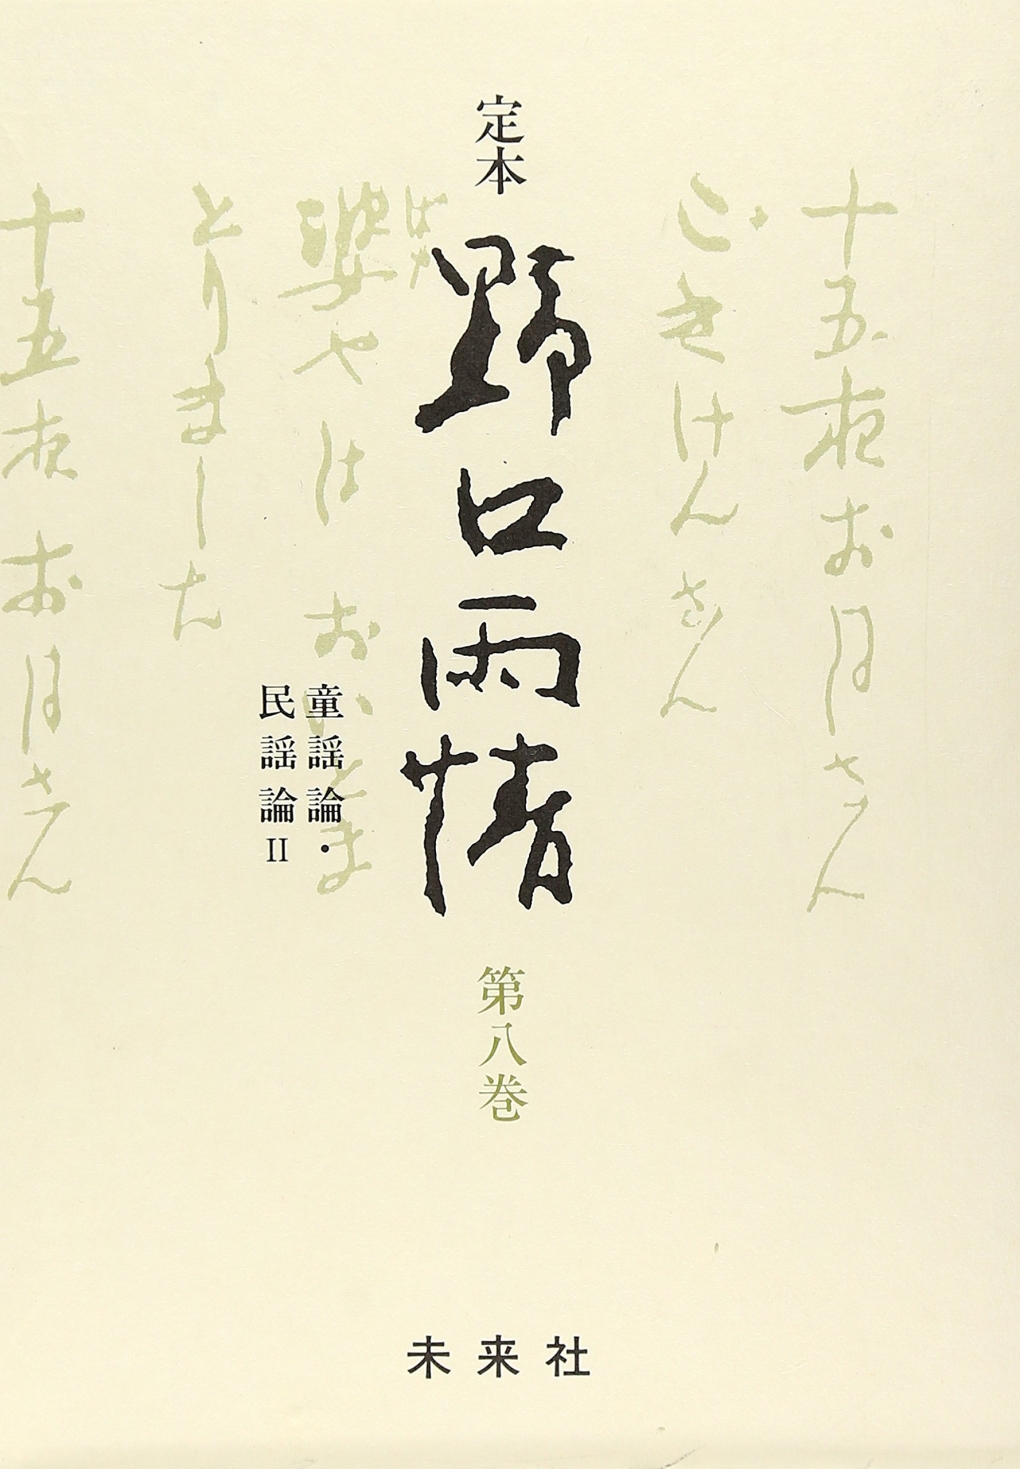 定本
野口雨情
第八巻
童謡論・
民謡論II
十五夜お月さん
ごきげんさん
ばあ
婆やは おいとま
とりました
十五夜お月さん
未来社